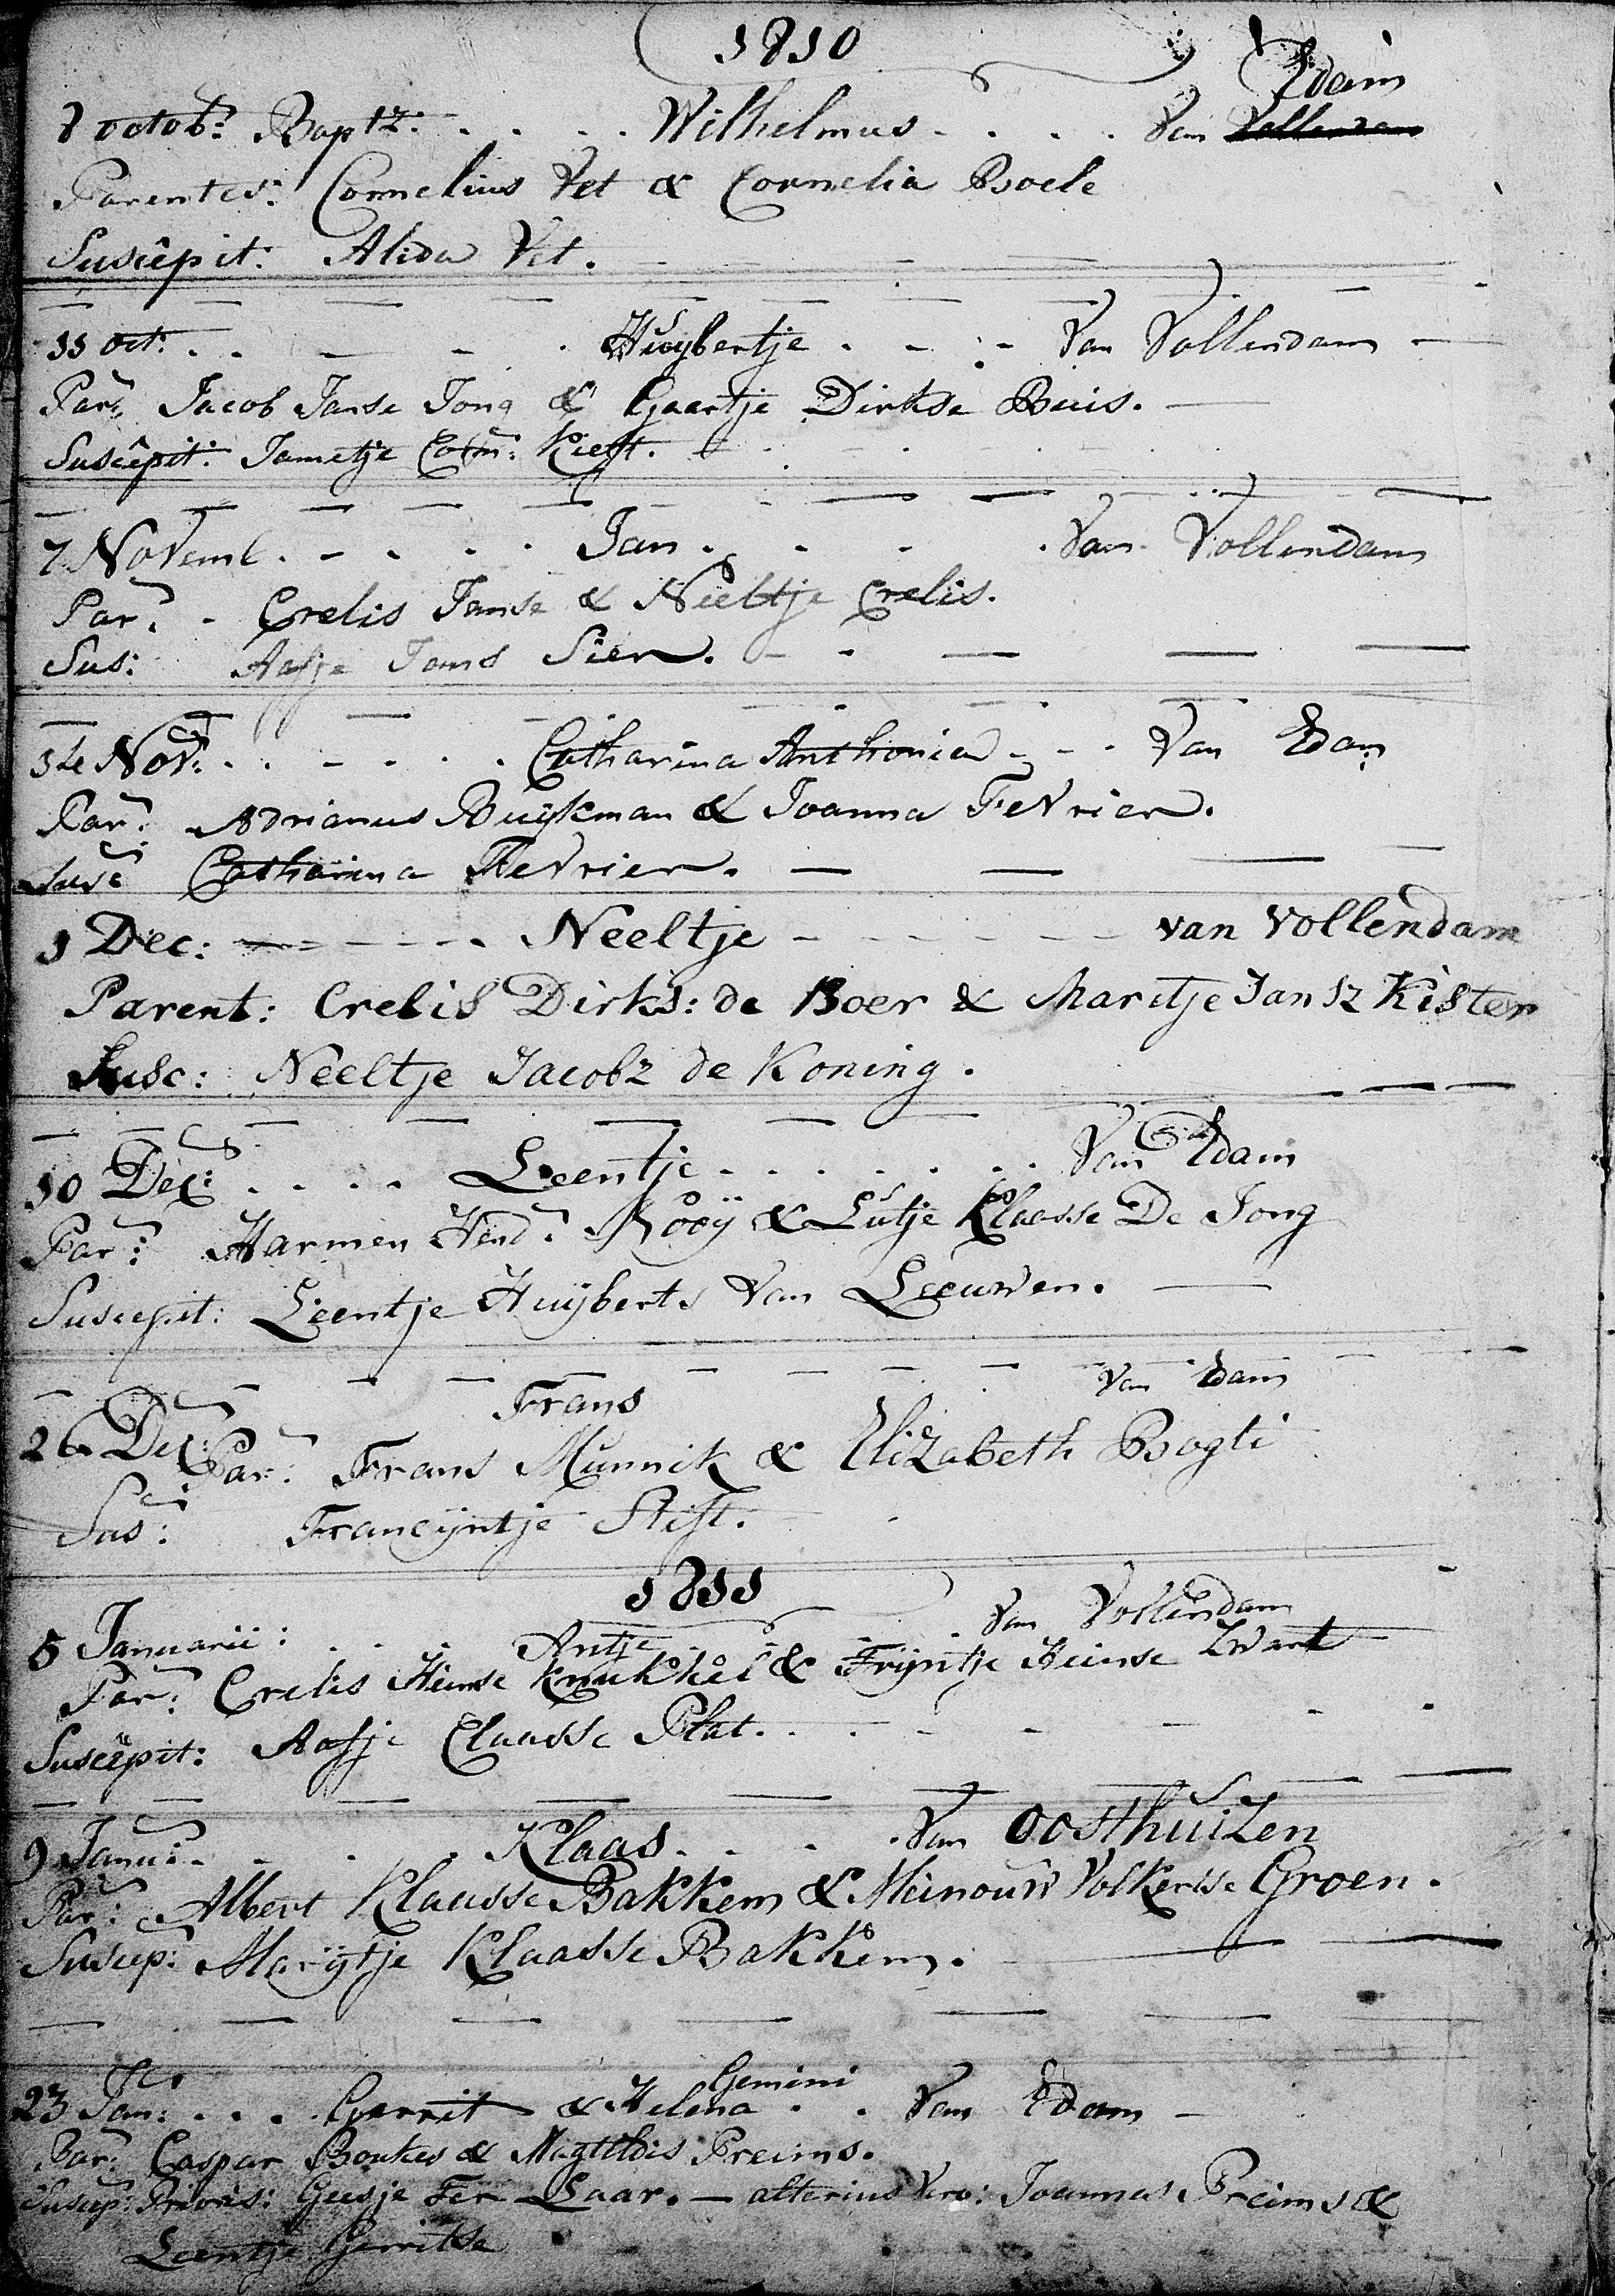 1810
8 octob: Baptz: . . . . Wilhelmus . . . . Van Edam
Parentes: Cornelius Vet & Cornelia Boele
Suscepit: Alida Vet.
11 oct: . . Huybertje . . Van Vollendam
Par: Jacob Janse Jong & Gaartje Dirkse Buis.
Suscepit: Jametje Corn: Kieft.
7 Novemb. . . . . Jan . . . Van Vollendam
Par: Crelis Janse & Neeltje Crelis.
Sus: Aafje Jans Sier.
14 Nov: . . . . . Catharina Anthonia . . Van Edam
Par: Adrianus Buijkman & Joanna FeVrier.
Susc Catharina FeVrier.
1 Dec: Neeltje van Vollendam
Parent: Crelis Dirks: de Boer & Maritje Jansz Kister
Susc: Neeltje Jacobz de Koning.
10 Dec: . . . . Leentje . . . . . . Van Edam
Par: Harmen Hend: Rooÿ & Lutje Klaasse De Jong
Suscepit: Leentje Huÿberts Van Leeuwen.
Frans Van Edam
26 Dec: Par: Frans Munnik & Elizabeth Bogti
Sus: Francijntje Stift.
1811
5 Januarii: . . . Antje . . . Van Vollendam
Par: Crelis Heinse Knukkel & Trijntje Heinse Zwart
Suscepit: Aafje Claasse Plat.
9 Janu: . . . Klaas . . . Van Oosthuizen
Par: Albert Klaasse Bakkem & Meinouw Volkertse Groen.
Suscep: Marijtje Klaasse Bakkem.
Gemini
23 Jan: . . . Gerrit & Helena . . Van Edam
Par: Caspar Boukes & Magtildis Preims.
Suscep: Prioris: Geesje Ter Laar. — alterius Vero: Joannes Preims &
Leentje Gerritse